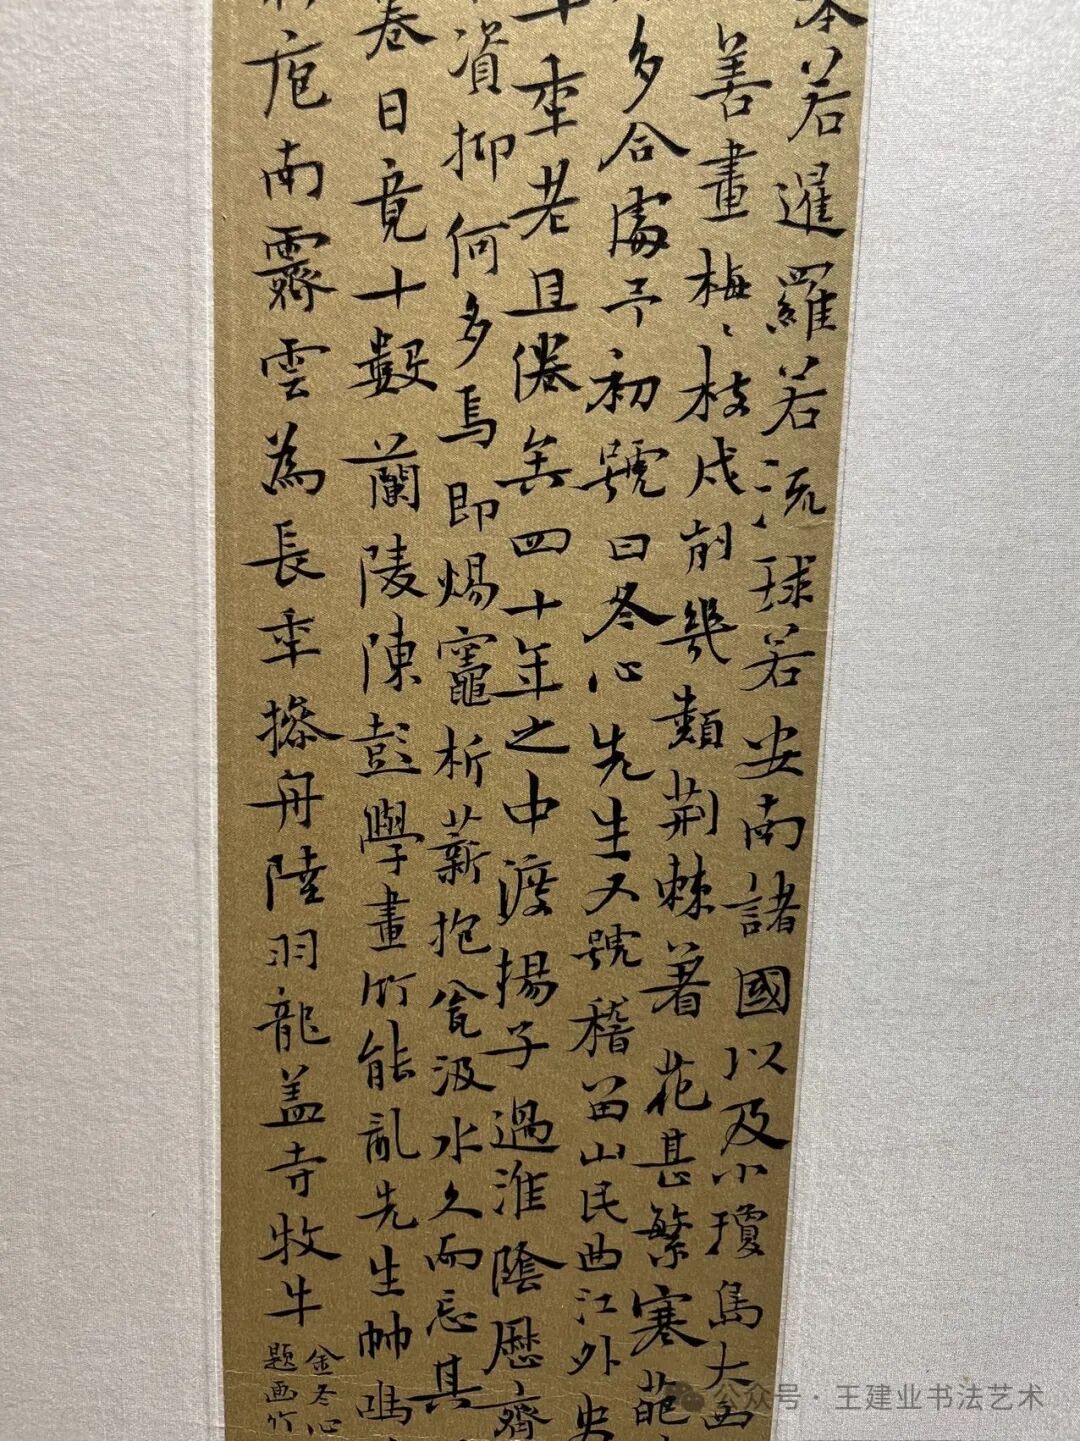 本若暹羅若流球若安南諸國以及小瓊島大西
善畫梅〻枝戍削幾類荆棘著花甚繁寒葩
多合處予初號曰冬心先生又號稽留山民曲江外史
年老且倦矣四十年之中渡揚子過淮陰歷齊
資抑何多焉即煬竈析薪抱瓮汲水久而忘其
卷日竟十數蘭陵陳彭學畫竹能亂先生帥
疱南霽雲為長年搽舟陸羽龍蓋寺牧牛
金冬心
題画竹
公众号·王建业书法艺术